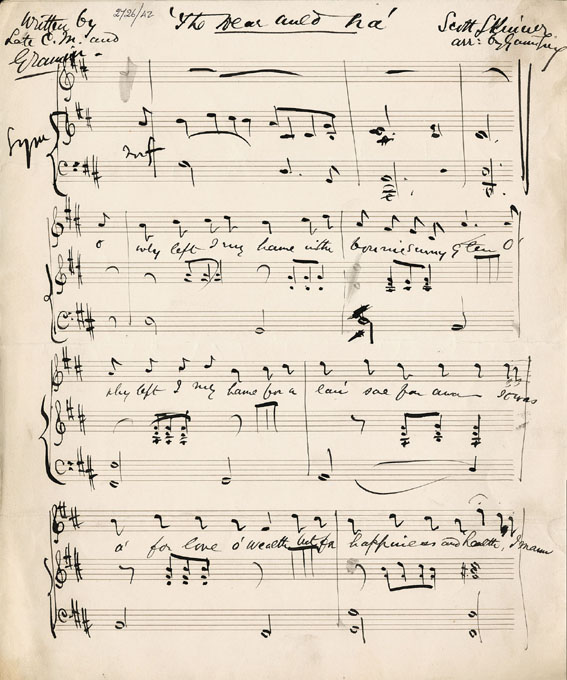 Written by 2726/42 'The Dear Auld Ha' Scott Skinner
Late C. M. and arr: by
Grannie
Sym
mf
O why left I my hame with bonnie sunny glen O
why left I my hame for a lan' sae far awa I was
a' for love o' wealth but for happiness and health, I maun